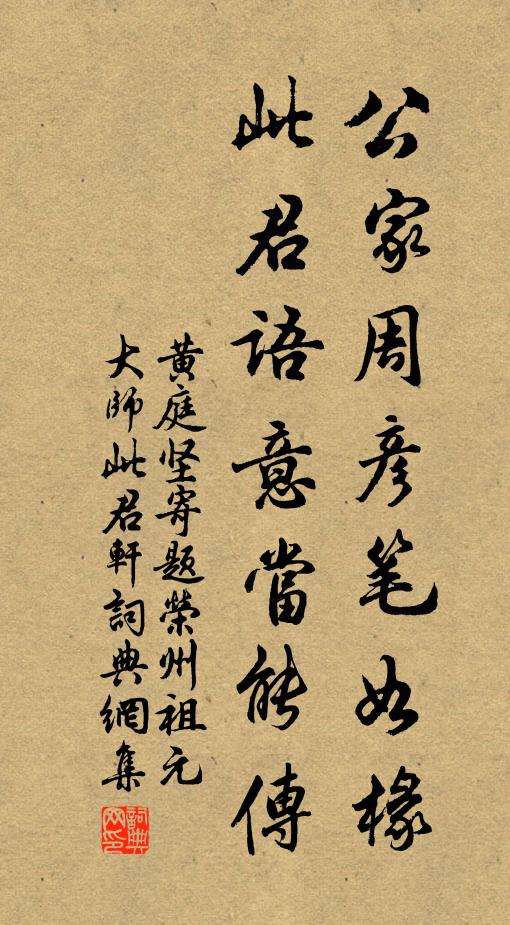 公家周彦笔如椽
此君語意當能傳
黄庭坚寄题榮州祖元
大師此君軒詞典網集
詞典网印